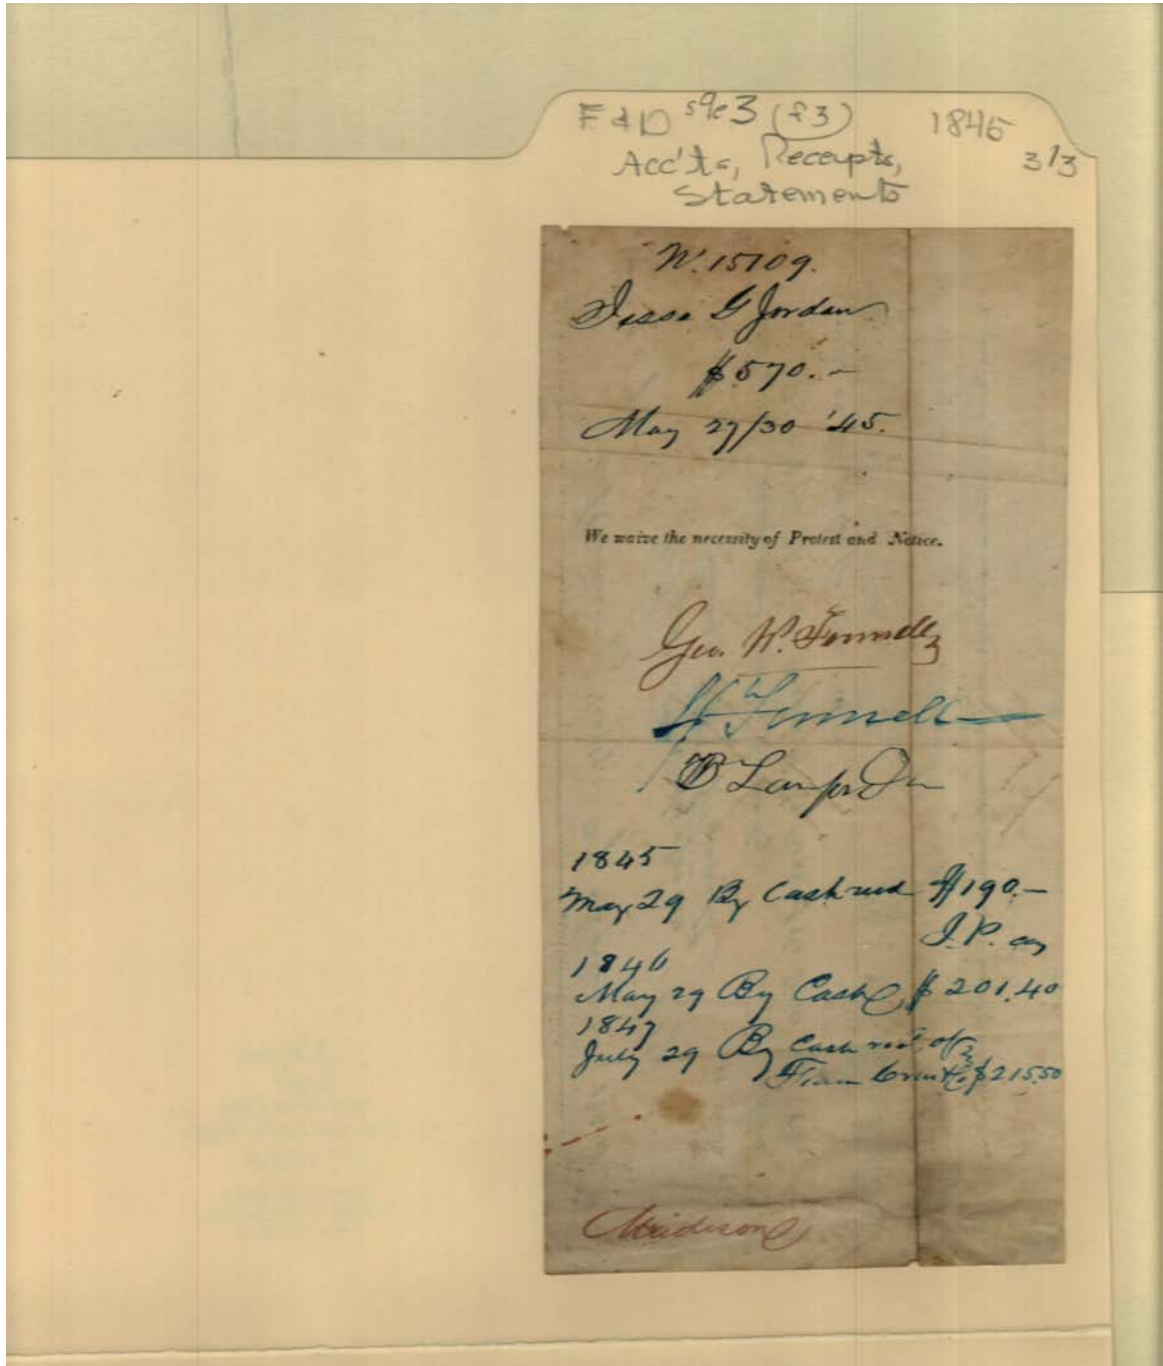 F & D s9e3 (f3) 1845
3/3
Acc'ts, Receipts,
Statements
N. 15109.
Jesse G Jordan
$570.–
May 27/30 '45.
We waive the necessity of Protest and Notice.
Geo. W. Fennell
Fennell
B
1845
May 29 By Cash $190.–
I. P.
1846
May 29 By Cash $201.40
1847
July 29 By Cash of
$215.50
Madison